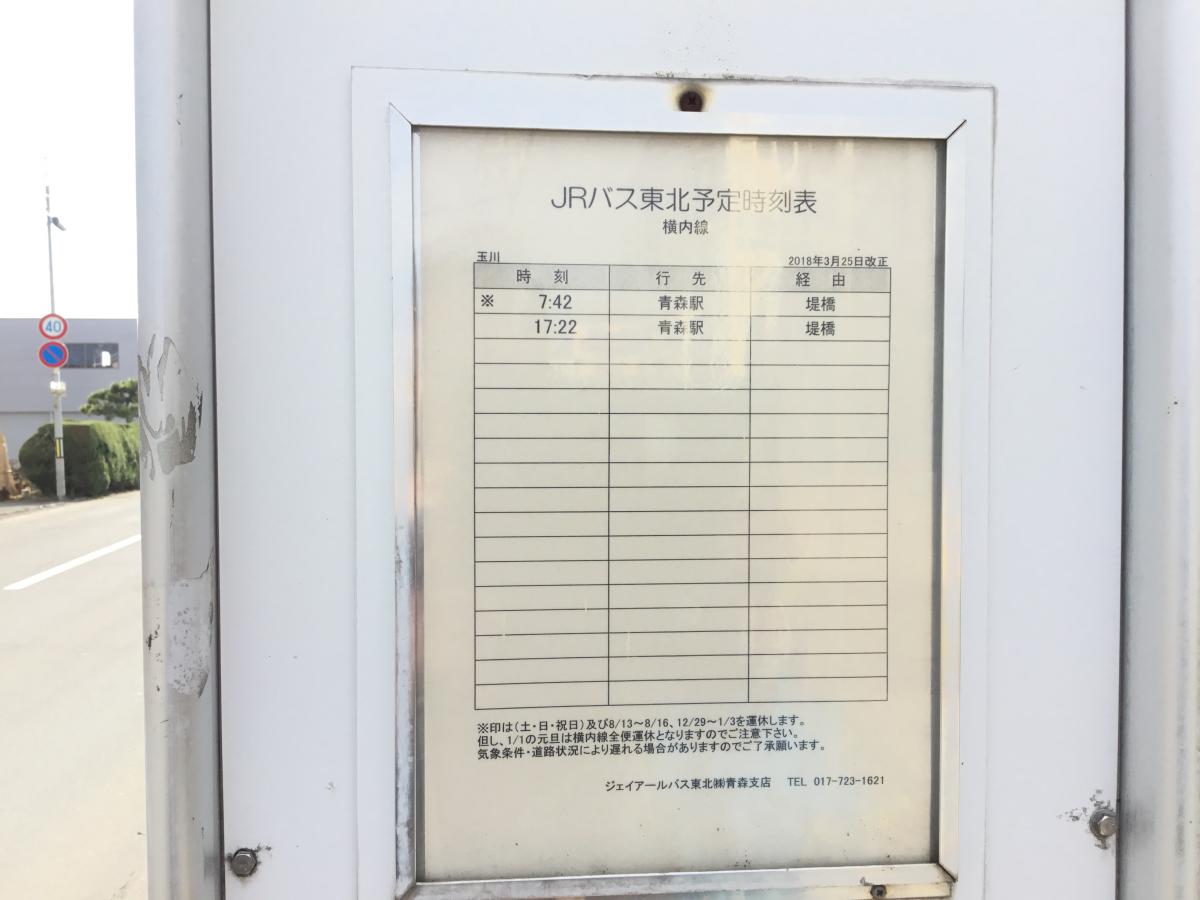 JRバス東北予定時刻表
横内線
玉川 2018年3月25日改正
時 刻 行 先 経 由
※ 7:42 青森駅 堤橋
17:22 青森駅 堤橋
※印は(土・日・祝日)及び8/13～8/16、12/29～1/3を運休します。
但し、1/1の元旦は横内線全便運休となりますのでご注意下さい。
気象条件・道路状況により遅れる場合がありますのでご了承願います。
ジェイアールバス東北㈱青森支店 TEL 017-723-1621
40